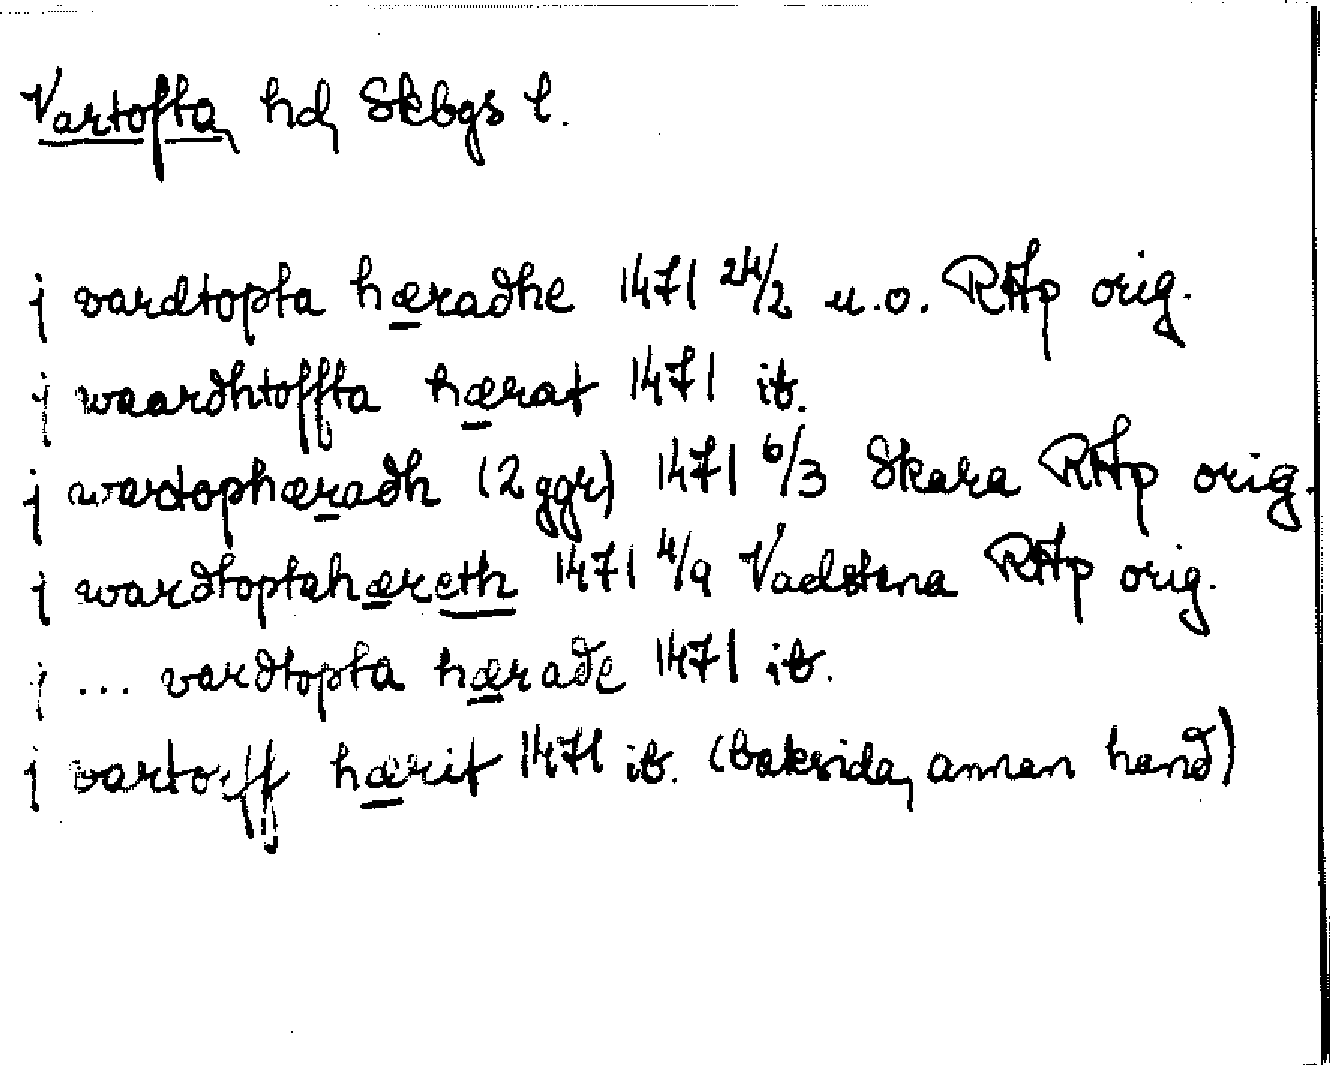 Vartofta hd, Skbgs l.
j vardtopta hæradhe 1471 24/2 u.o. RAp orig.
j waardhtoffta hærat 1471 ib.
j wartophæradh (2 ggr) 1471 6/3 Skara RAp orig.
j wardtoptahæreth 1471 4/9 Vadstena RAp orig.
j ... vardtopta hærade 1471 ib.
j vartoff hærit 1471 ib. (baksida, annan hand)